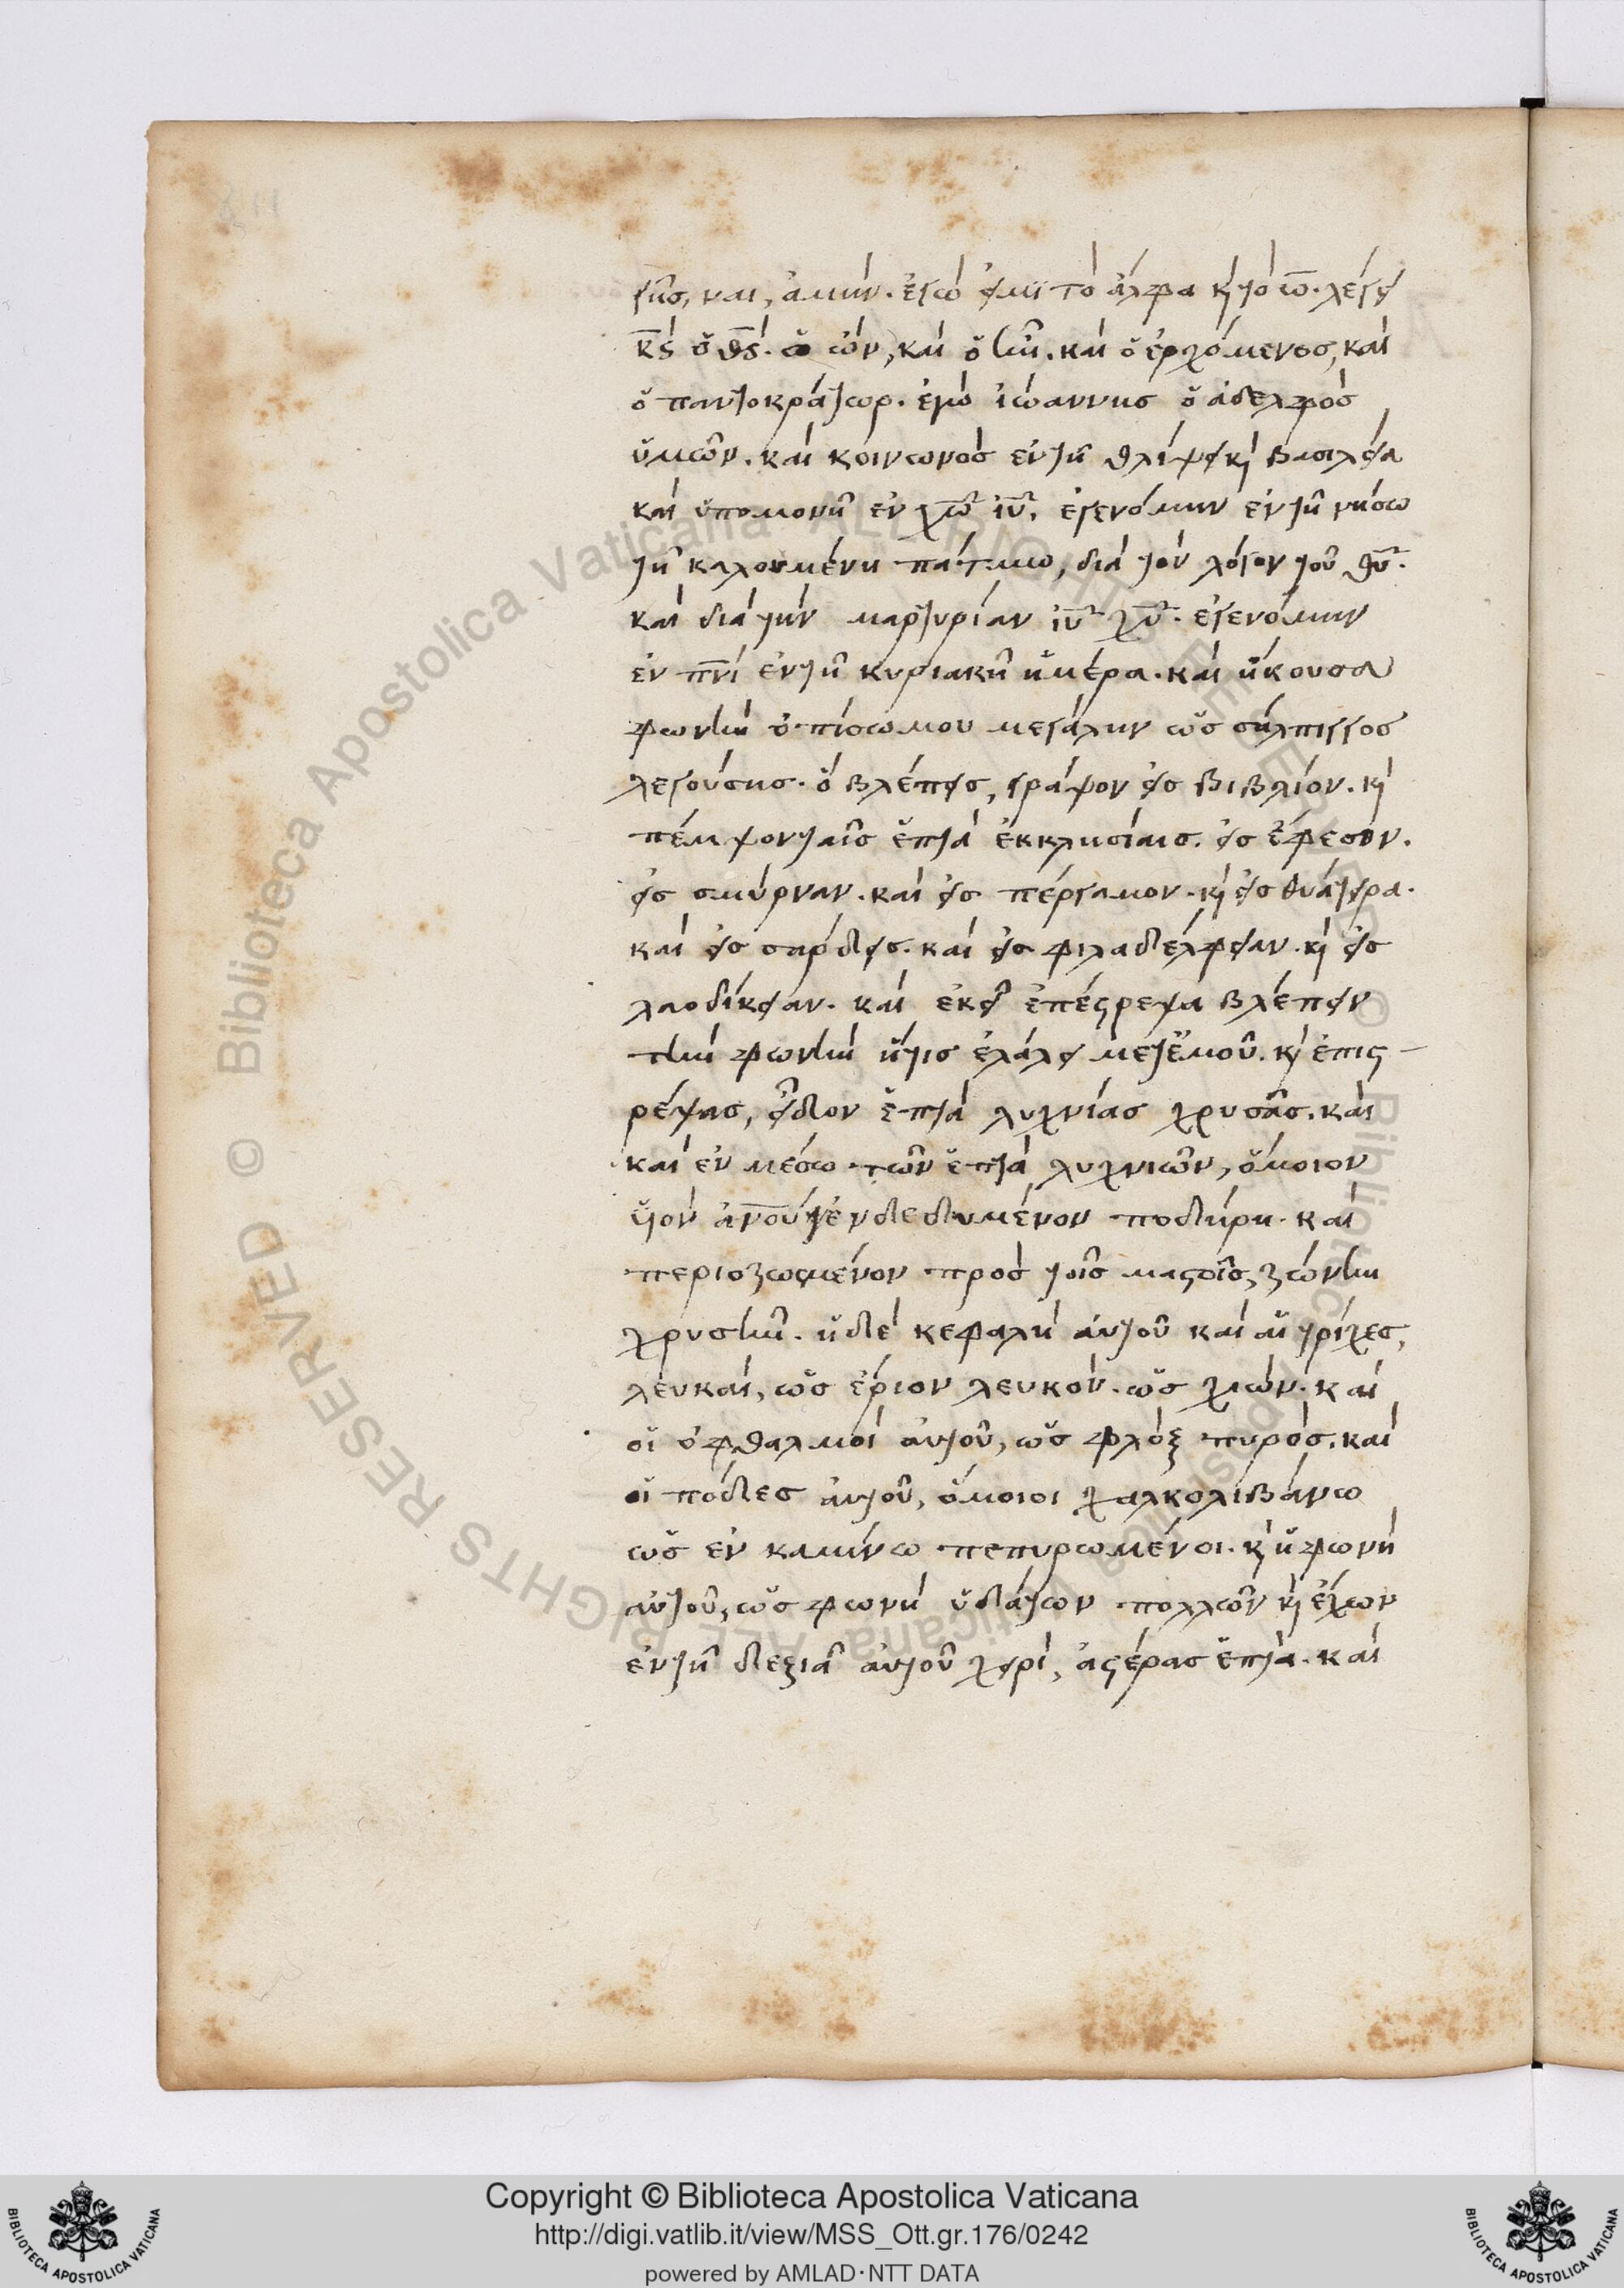 γῆς, ναι, ἀμήν. ἐγώ εἰμι τὸ ἄλφα κ̀ τὸ ω̅. λέγει
κ̅ς ὁ θ̅ς. ὁ ὢν, καὶ ὁ ἦν. καὶ ὁ ἐρχόμενος, καὶ
ὁ παντοκράτωρ. ἐγὼ ἰωάννης ὁ ἀδελφὸς
ὑμῶν. καὶ κοινωνὸς ἐν τῆ θλίψει κ̀ βασιλεία
καὶ ὑπομονῆ ἐν χ̅ω ι̅υ. ἐγενόμην ἐν τῆ νήσω
τῆ καλουμένη πάτμω, διὰ τὸν λόγον τοῦ θ̅υ.
καὶ διὰ τὴν μαρτυρίαν ι̅υ χ̅υ. ἐγενόμην
ἐν π̅ν̅ι ἐν τῆ κυριακῆ ἡμέρα. καὶ ἤκουσα
φωνὴν ὀπίσω μου μεγάλην ὡς σάλπιγγος
λεγούσης. ὃ βλέπεις, γράψον εἰς βιβλίον. κ̀
πέμψον ταῖς ἑπτὰ ἐκκλησίαις. εἰς ἔφεσον.
εἰς σμύρναν. καὶ εἰς πέργαμον. κ̀ εἰς θυάτειρα.
καὶ εἰς σάρδεις. καὶ εἰς φιλαδέλφειαν. κ̀ εἰς
λαοδίκειαν. καὶ ἐκεῖ ἐπέστρεψα βλέπειν
τὴν φωνὴν ἥτις ἐλάλει μετ' ἐμοῦ. κ̀ ἐπιστ
ρέψας, εἶδον ἑπτὰ λυχνίας χρυσᾶς. καὶ
καὶ ἐν μέσω τῶν ἑπτὰ λυχνιῶν, ὅμοιον
υἱὸν ἀ̅ν̅ο̅υ ἐνδεδυμένον ποδήρη. καὶ
περιεζωσμένον πρὸς τοῖς μαστοῖς, ζώνην
χρυσῆν. ἡ δὲ κεφαλὴ αὐτοῦ καὶ αἱ τρίχες,
λευκαὶ, ὡς ἔριον λευκὸν. ὡς χιών. καὶ
οἱ ὀφθαλμοὶ αὐτοῦ, ὡς φλὸξ πυρός. καὶ
οἱ πόδες αὐτοῦ, ὅμοιοι χαλκολιβάνω
ὡς ἐν καμίνω πεπυρωμένοι. κ̀ ἡ φωνὴ
αὐτοῦ, ὡς φωνὴ ὑδάτων πολλῶν κ̀ ἔχων
ἐν τῆ δεξιᾶ αὐτοῦ χειρὶ, ἀστέρας ἑπτὰ. καὶ
Copyright © Biblioteca Apostolica Vaticana
http://digi.vatlib.it/view/MSS_Ott.gr.176/0242
powered by AMLAD·NTT DATA
BIBLIOTECA APOSTOLICA VATICANA
BIBLIOTECA APOSTOLICA VATICANA
© Biblioteca Apostolica Vaticana ALL RIGHTS RESERVED
© Biblioteca Apostolica Vaticana ALL RIGHTS RESERVED